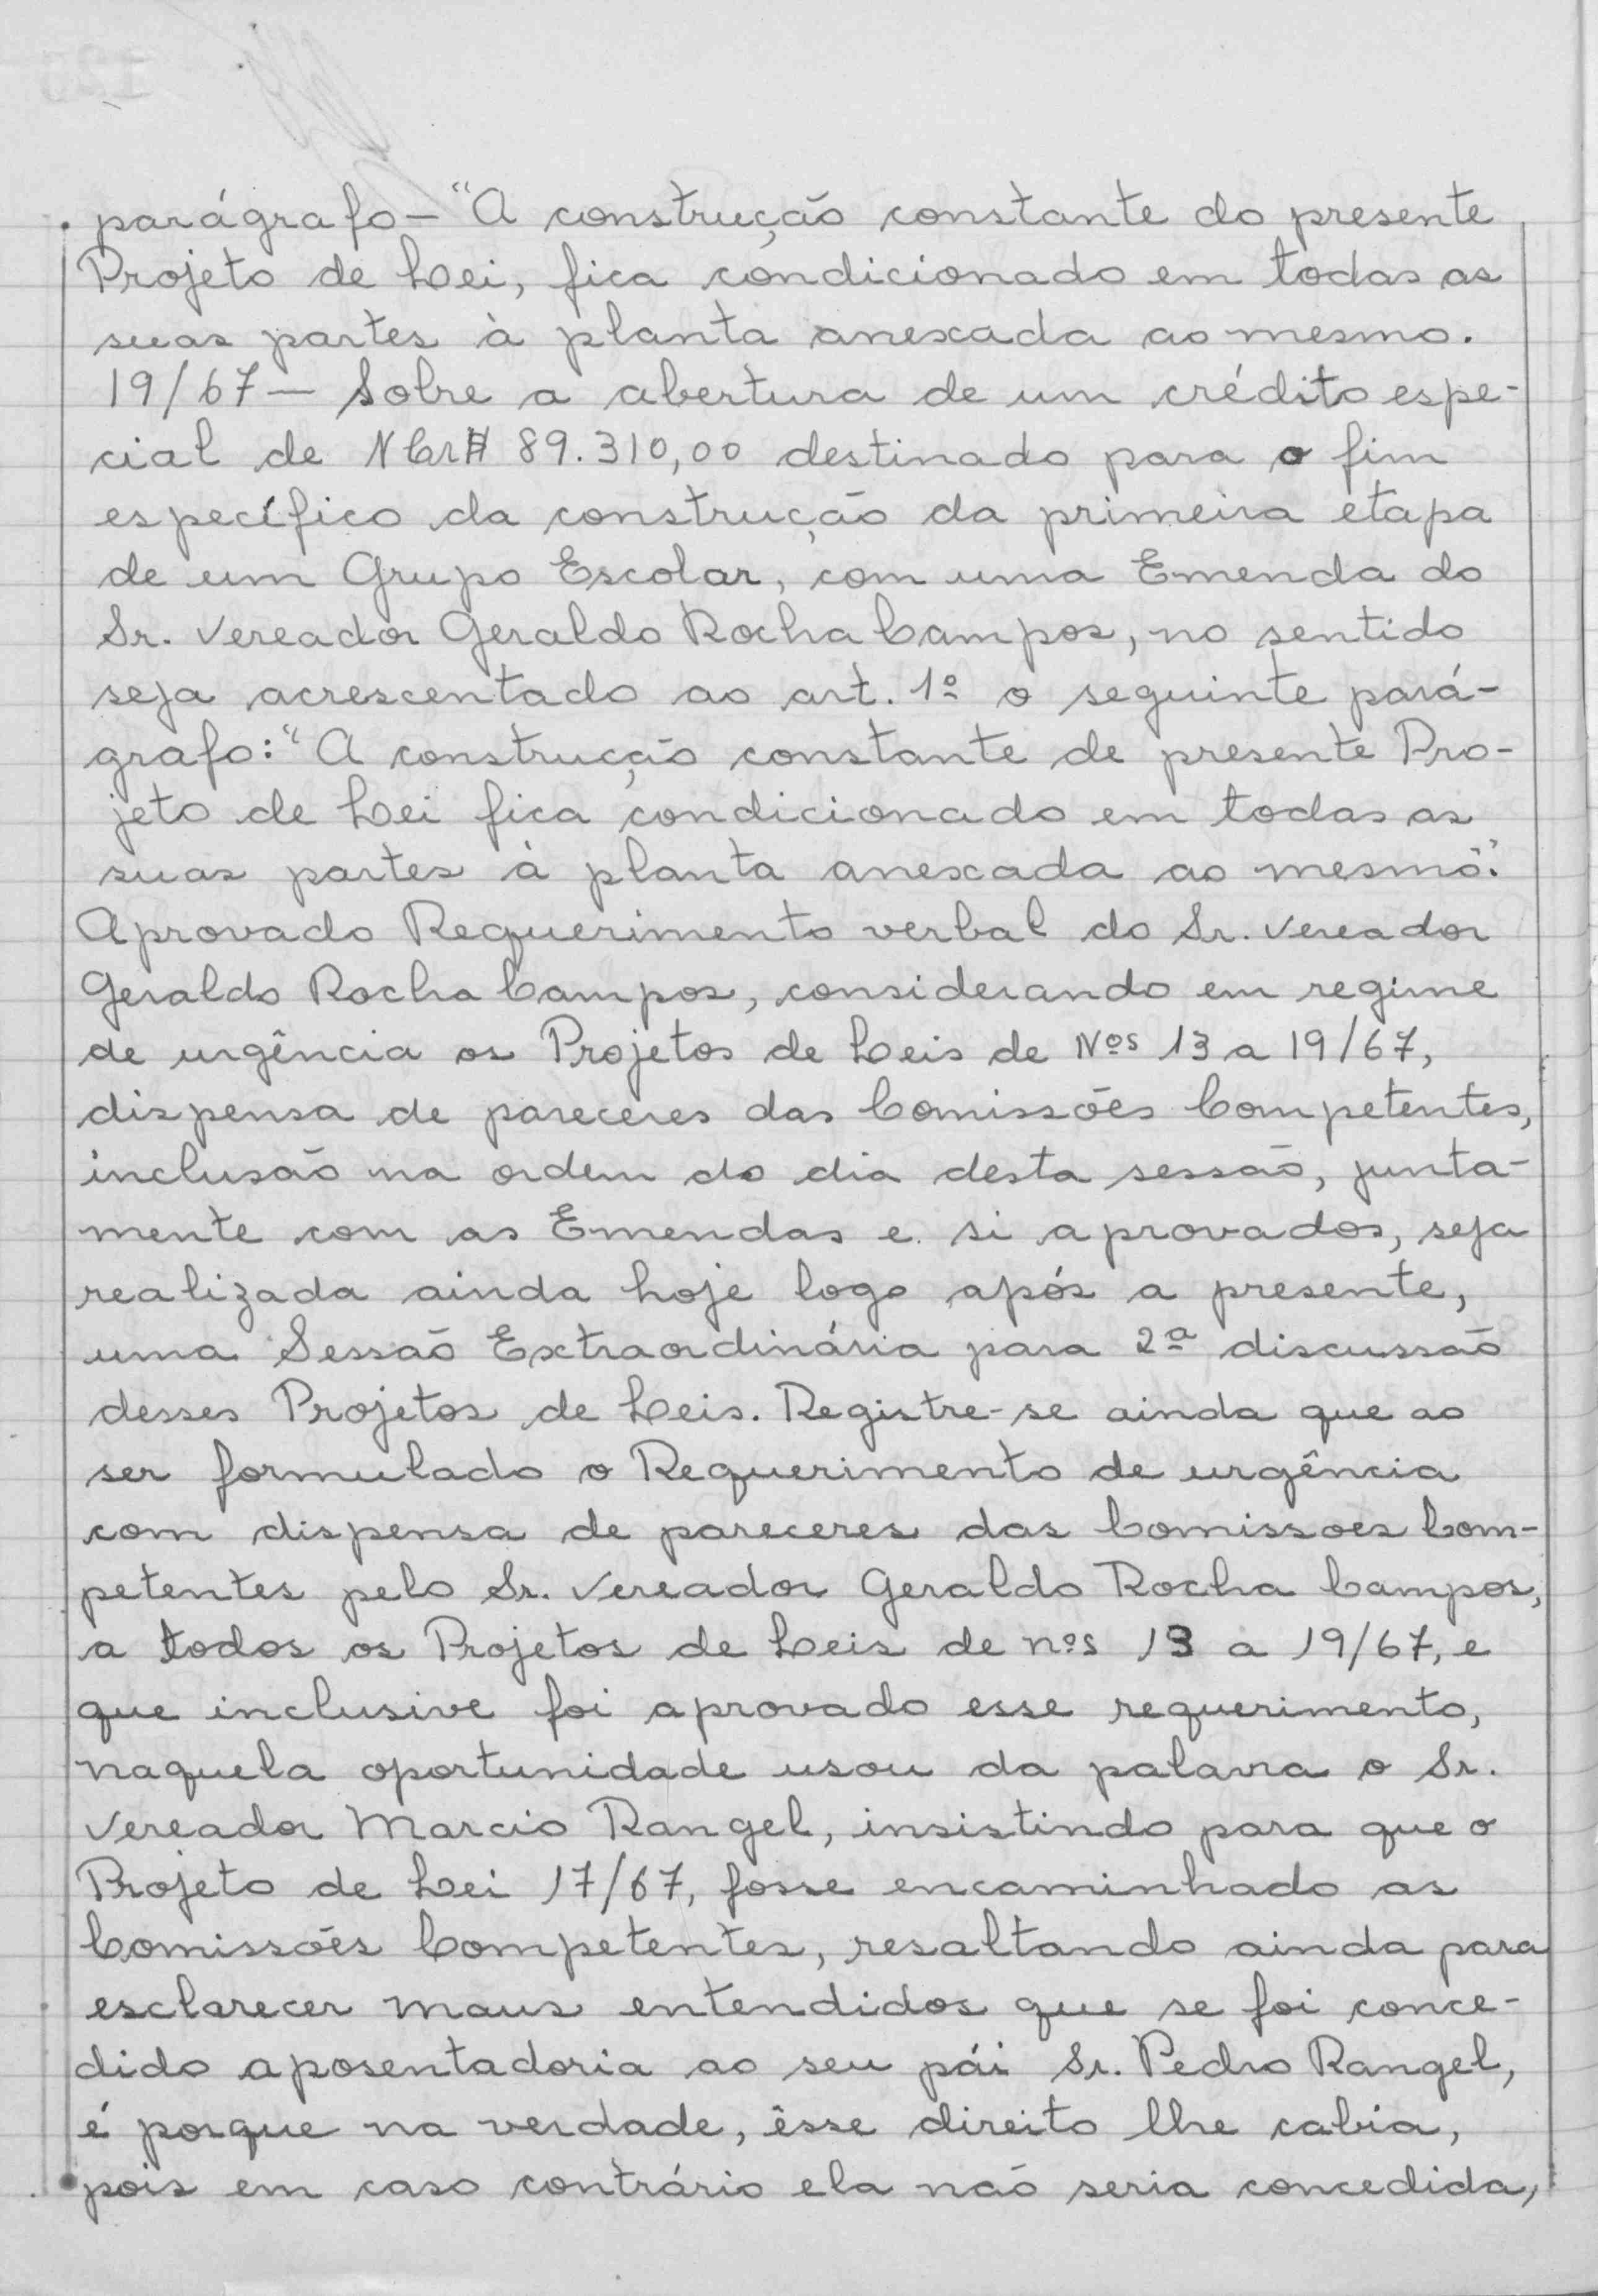 parágrafo — "A construção constante do presente
Projeto de Lei, fica condicionado em todas as
suas partes à planta anexada ao mesmo.
19/67 — Sobre a abertura de um crédito espe-
cial de NCr$ 89.310,00 destinado para o fim
específico da construção da primeira etapa
de um Grupo Escolar, com uma Emenda do
Sr. Vereador Geraldo Rocha Campos, no sentido
seja acrescentado ao art. 1º o seguinte pará-
grafo: "A construcção constante de presente Pro-
jeto de Lei fica condicionado em todas as
suas partes à planta anexada ao mesmo."
Aprovado Requerimento verbal do Sr. Vereador
Geraldo Rocha Campos, considerando em regime
de urgência os Projetos de Leis de Nºs 13 a 19/67,
dispensa de pareceres das Comissões Competentes,
inclusão na ordem do dia desta sessão, junta-
mente com as Emendas e si aprovados, seja
realizada ainda hoje logo após a presente,
uma Sessão Extraordinária para 2ª discussão
desses Projetos de Leis. Registre-se ainda que ao
ser formulado o Requerimento de urgência
com dispensa de pareceres das Comissoes Com-
petentes pelo Sr. Vereador Geraldo Rocha Campos,
a todos os Projetos de Leis de nºs 13 a 19/67, e
que inclusive foi aprovado esse requerimento,
naquela oportunidade usou da palavra o Sr.
Vereador Marcio Rangel, insistindo para que o
Projeto de Lei 17/67, fosse encaminhado as
Comissões Competentes, resaltando ainda para
esclarecer maus entendidos que se foi conce-
dido aposentadoria ao seu pái Sr. Pedro Rangel,
é porque na verdade, êsse direito lhe cabia,
pois em caso contrário ela não seria concedida,